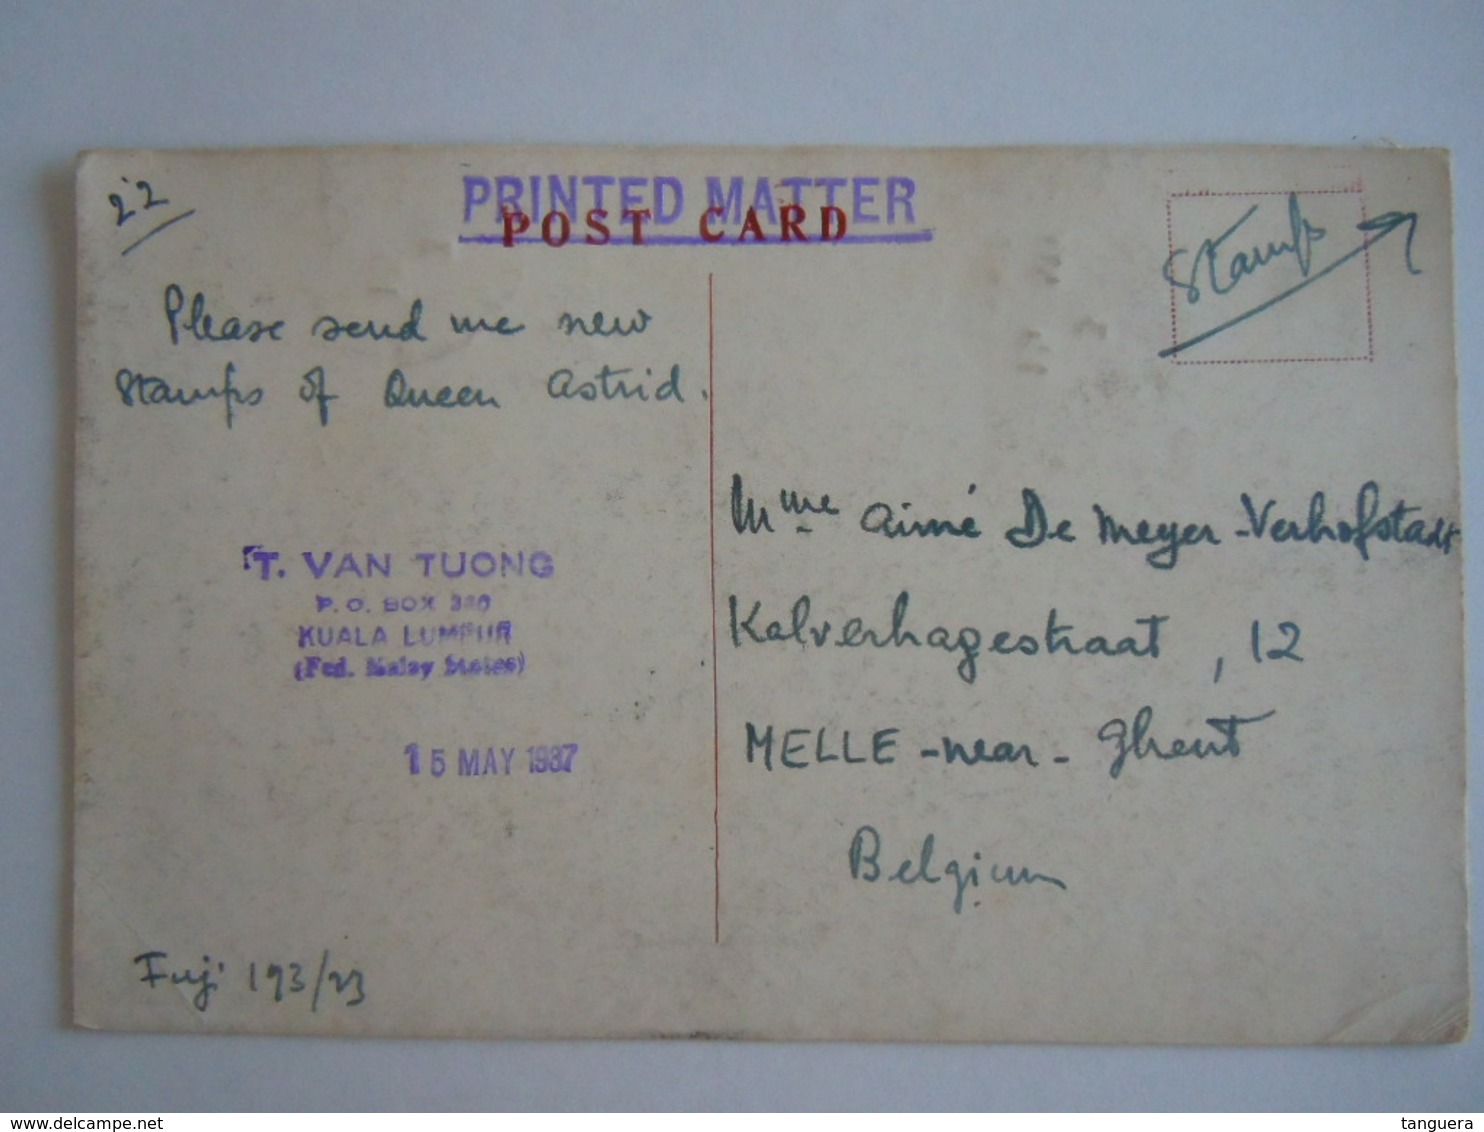 22
PRINTED MATTER
POST CARD
Stamps
Please send me new
stamps of Queen Astrid.
T. VAN TUONG
P.O. BOX
KUALA LUMPUR
(Fed. Malay States)
15 MAY 1937
Mme Aimé De Meyer-Verhofstadt
Kalverhagestraat, 12
MELLE -near- Ghent
Belgium
Fuji 193/23
www.delcampe.net
tanguera